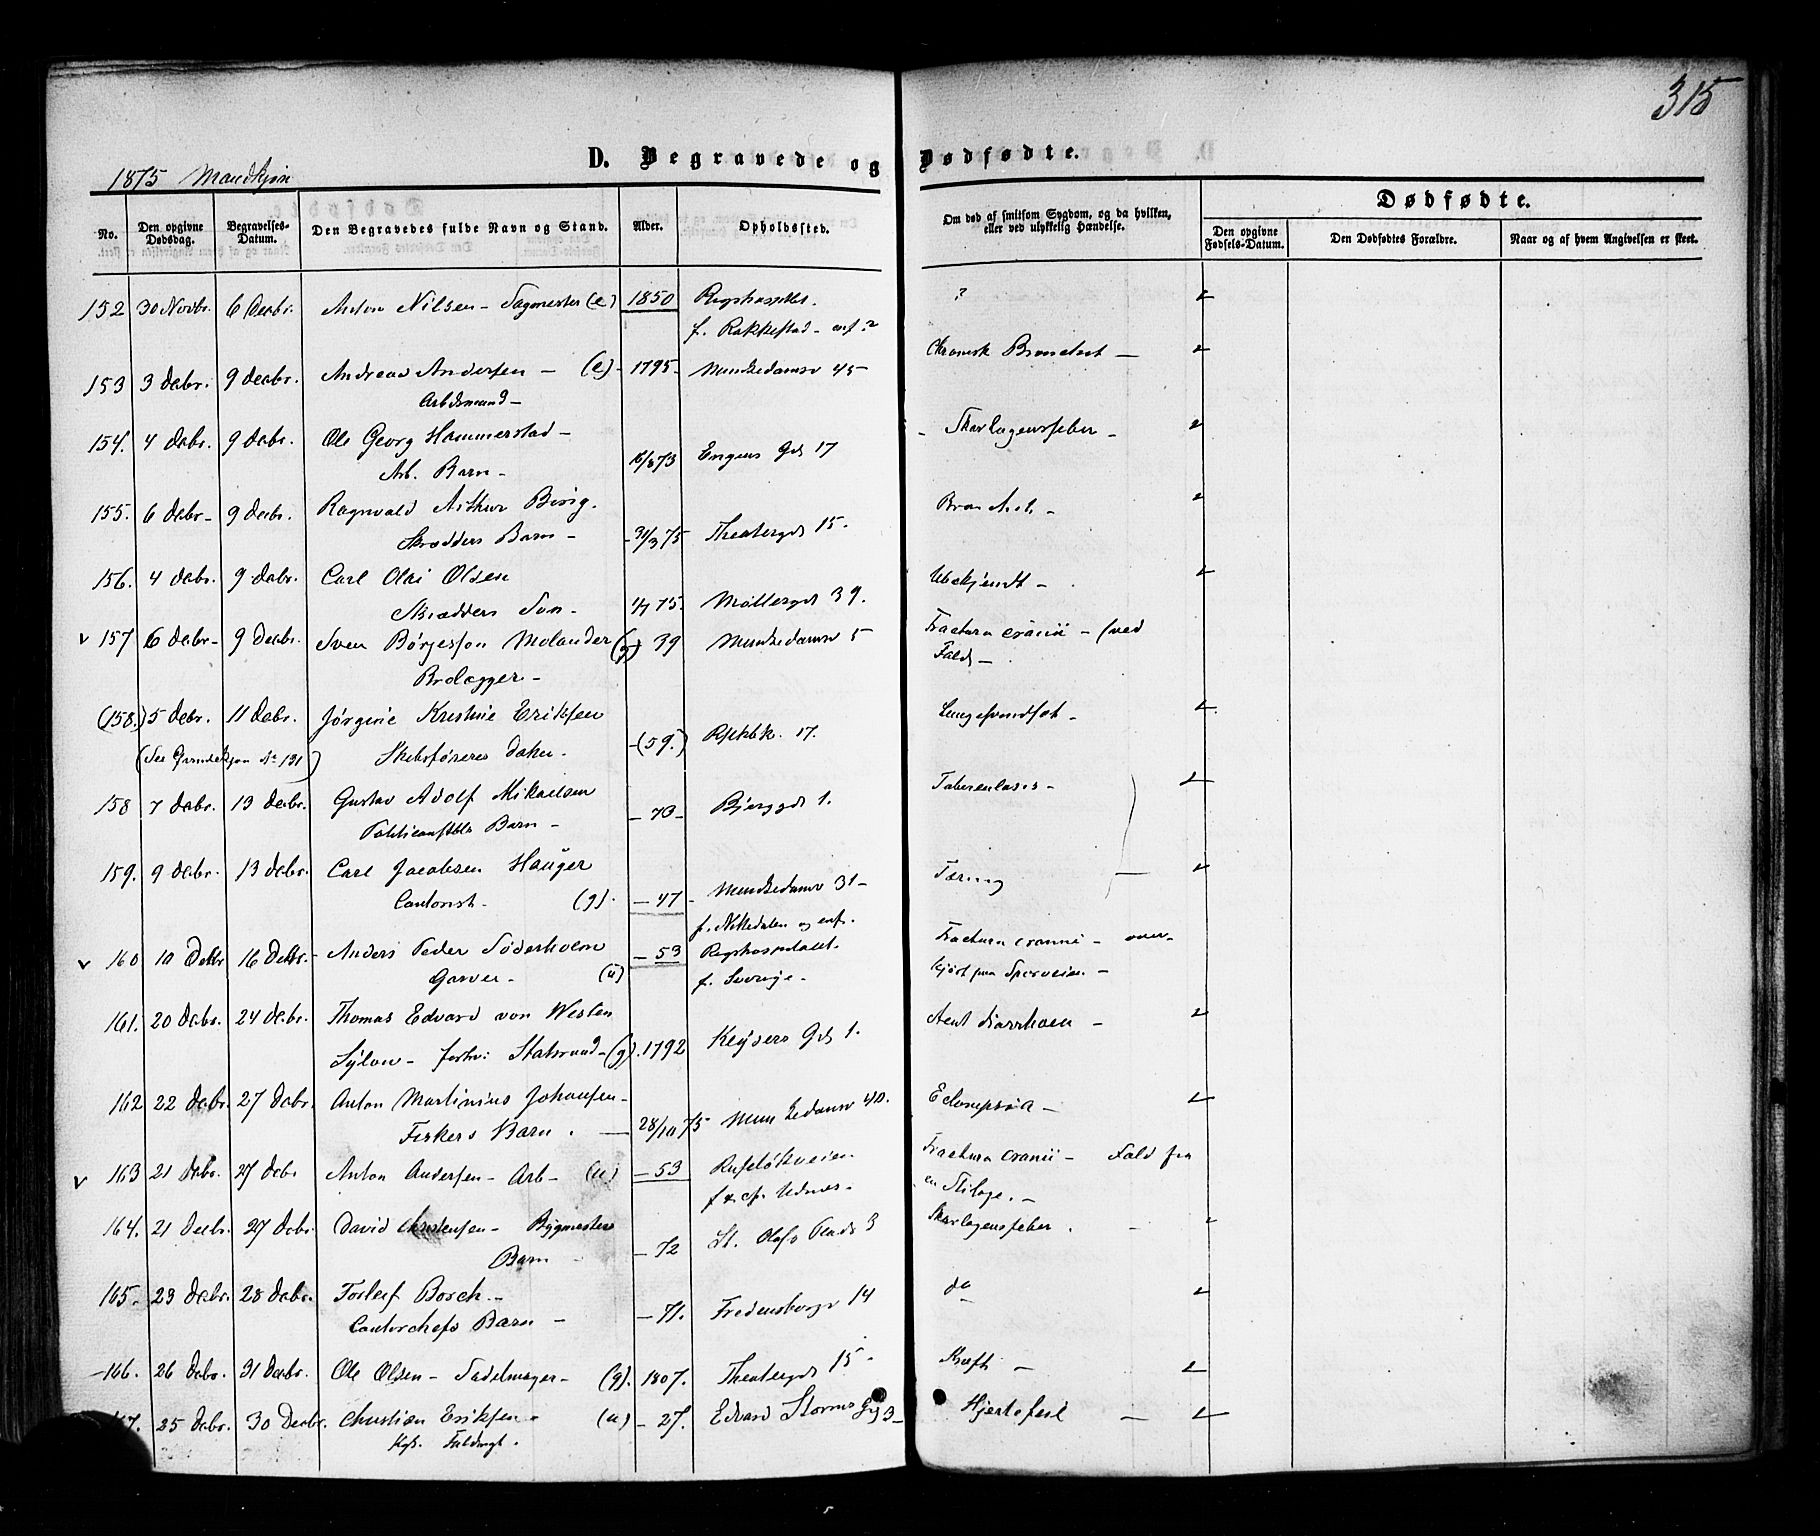 315
D. Begravede og Dødfødte.
1875 Mandkjøn
No. Den opgivne Dødsdag. Begravelses-Datum. Den Begravedes fulde Navn og Stand. Alder. Opholdssted. Om død af smitsom Sygdom, og da hvilken, eller ved ulykkelig Hændelse. Dødfødte.
Den opgivne Fødsels-Datum. Den Dødfødtes Forældre. Naar og af hvem Angivelsen er skeet.
152 30 Novbr. 6 Decbr. Anton Nilsen - Sagmester (e) 1850 Rigshospitlt. ?
f. Rakkestad - enf ?
153 3 decbr. 9 decbr. Andreas Andersen - (e) - 1795 - Munkedamsv 45 Kronisk Bronchit -
Arbdsmand -
154. 4 decbr. 9 decbr. Ole Georg Hammerstad - Skarlagensfeber -
Arb. Barn - 16/8 73 Engens Gd 17
155. 6 decbr - 9 decbr. Ragnvald Arthur Borig. Bronchit. -
Skrædders Barn - - 31/3 75 Theatergd 15.
156. 4 decbr. 9 decbr. Carl Olai Olsen Ubekjendt -
Skrædders Søn - 1/7 75. Møllergd 39.
v 157 6 decbr - 9 decbr. Sven Børgesson Molander (g) - 39 Munkedamsv 5 Fractura cranii - (ved
Brolægger - Fald -
(158.) 5 decbr. 11 decbr. Jørgine Kristine Eriksen Lungesvindsot -
(See Qvindekjøn No 131) Skibsførers datter - - (59.) Rpkbk. 17.
158 7 decbr. 13 decbr. Gustav Adolf Mikaelsen Tuberculosis -
Politiconstbls Barn - - 73 - Bjerggd 1.
159. 9 decbr. 13 decbr. Carl Jacobsen Hauger Tæring
Contorist. (g). - 47 - Munkedamsv 31 -
f. Nittedalen og enf.
v 160 10 Decbr 16 Decbr. - Anders Peder Söderholm - 53 Rigshospitalet. Fractura cranii - over-
Garver - (u) f. Sverige - kjørt paa Sporveien -
161. 20 decbr. 24 decbr. Thomas Edvard von Westen Acut diarrhoea -
Sylow - forhv: Statsraad - (g). 1792 Keysers Gd 1.
162 22 decbr. 27 decbr. Anton Martinius Johansen - Eclampsia -
Fiskers Barn. - 28/10 75 Munkedamsv 40.
v 163 21 decbr. 27 decbr Anton Andersen - Arb - (u) - 53 Rufsløkveien Fractura cranii - Fald fra
en Stilage. -
164. 21 decbr. 27 decbr. David Christensen - Bygmesters Skarlagensfeber. -
Barn - - 72 St. Olafs Plads 3
165. 23 decbr. 28 decbr. Torleif Borch - do
Contorchefs Barn - - 71. Fredensborgv 14
166. 26 decbr. 31 decbr. Ole Olsen - Sadelmager - (g). 1807. Theatergd 15 - Kræft -
167. 25 decbr. 30 Decbr. Christian Eriksen - (u) - 27. Edvard Storms Gd 3 - Hjertefeil -